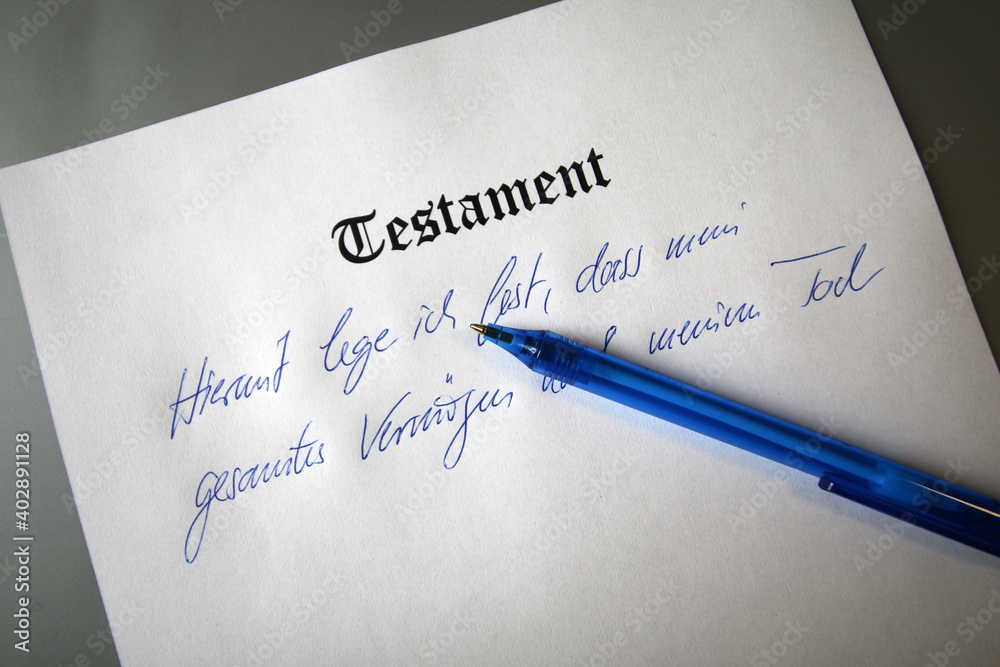 Testament
Hiermit lege ich fest, dass mein
gesamtes Vermögen meinem Tod
Adobe Stock | #402891128